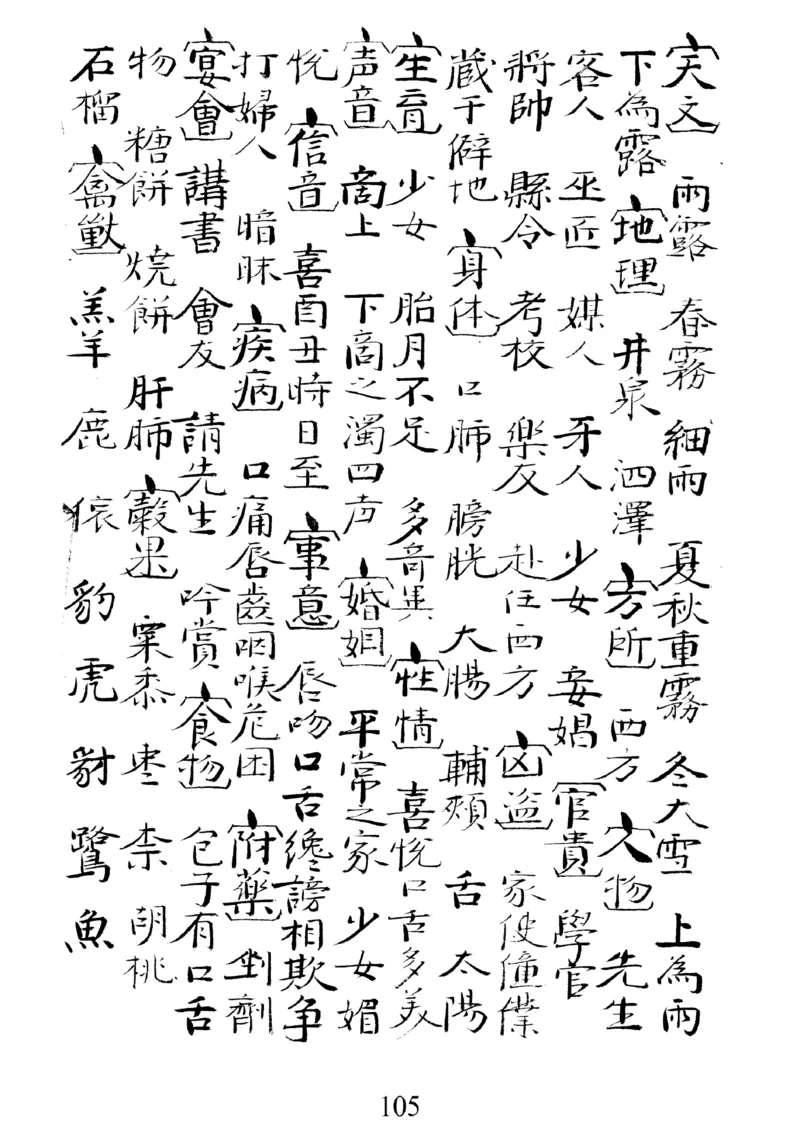 天文 雨露 春霧 細雨 夏秋重霧 冬大雪 上為雨
下為露 地理 井泉 泗澤 方所 西方 人物 先生
客人 巫匠 媒人 牙人 少女 妾娼 官貴 學官
將帥 縣令 考校 樂友 赴任西方 凶盗 家使僮僕
蔵于僻地 身体 口肺 膀胱 大腸 輔頰 舌 太陽
生育 少女 胎月不足 多奇異 性情 喜悅口舌多美
声音 商上 下商之濁四声 婚姻 平常之家 少女媚
悅 信音 喜酉丑時日至 事意 唇吻口舌纔謗相欺争
打婦人 暗昧 疾病 口痛唇齒咽喉危困 附藥 剉劑
宴會 講書 會友 請先生 吟賞 食物 包子有口舌
物 糖餅 燒餅 肝肺 穀果 粟黍 枣 柰 胡桃
石榴 禽獸 羔羊 鹿 猿 豹 虎 豺 鷺 魚
105